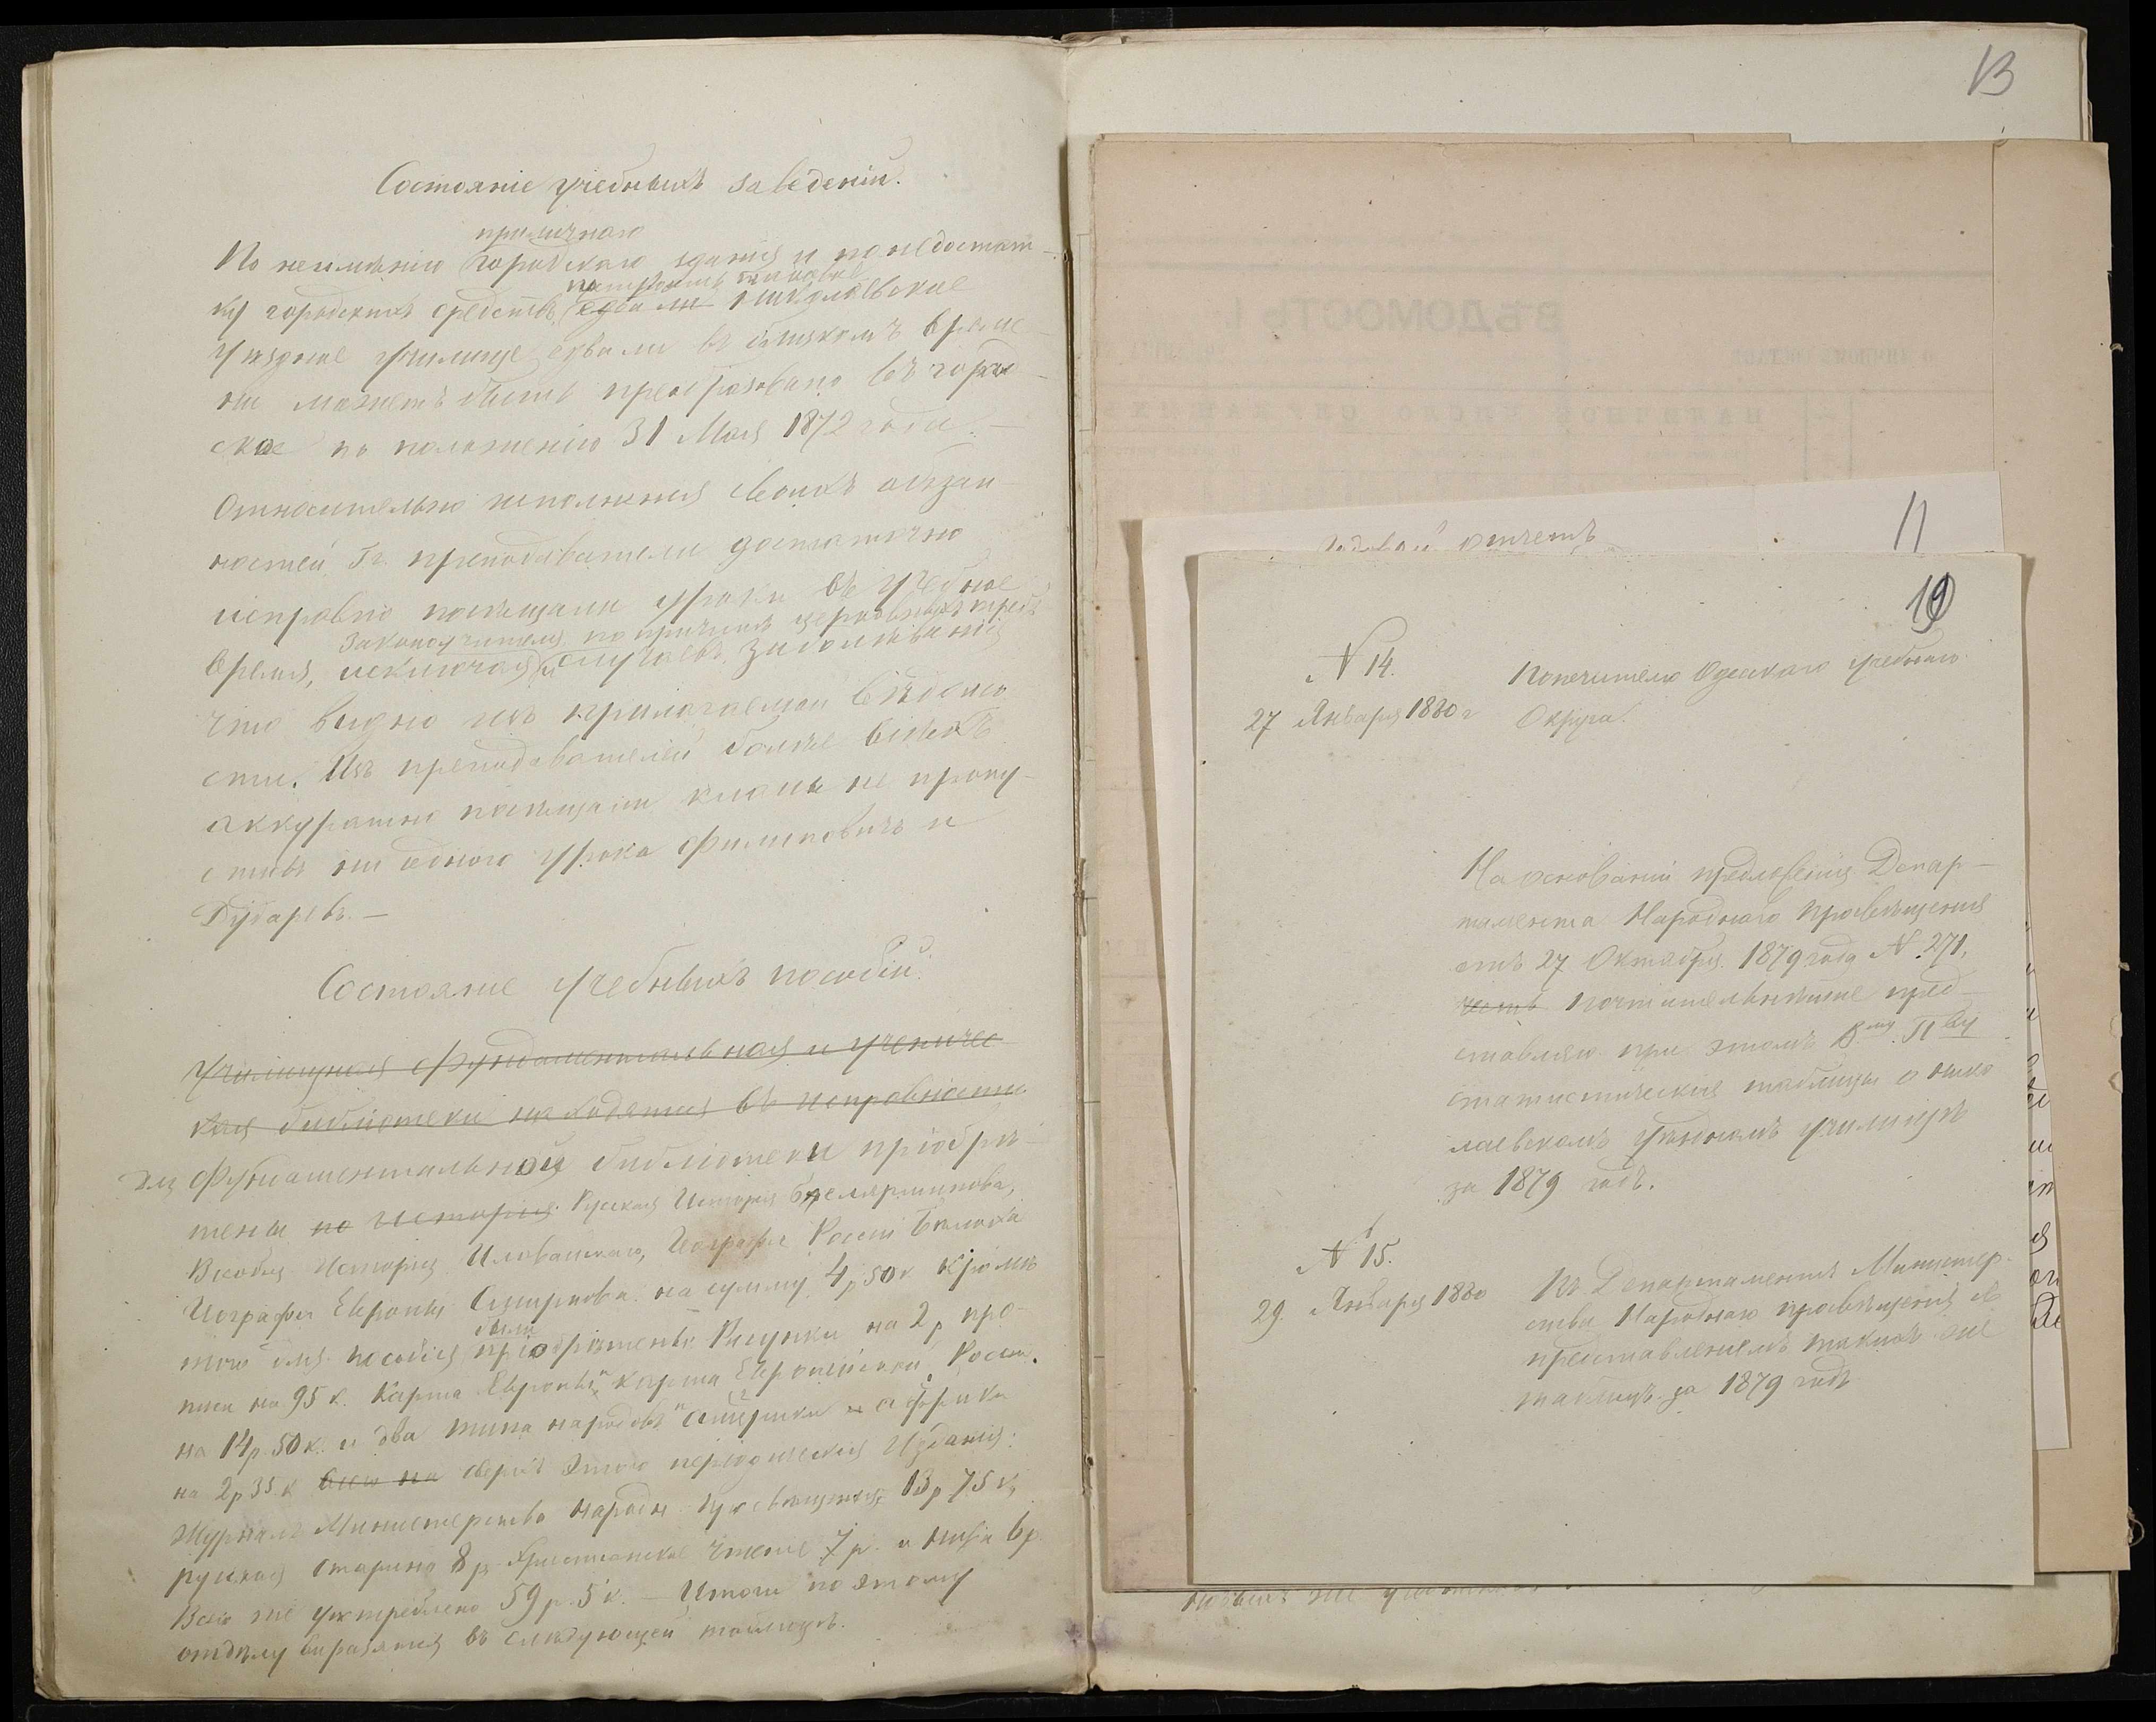 Состояніе учебныхъ заведеній.
приличнаго
По неимѣнію городскаго зданія и по недостат-
ку городскихъ средствъ едва ли Николаевское
уѣздное училище едва ли въ близкомъ време-
ни можетъ быть преобразовано въ город-
ское по положенію 31 Мая 1872 года. —
Относительно исполненія своихъ обязан-
ностей Гг. преподаватели достаточно
исправно посѣщали уроки въ учебное
Законоучителя по причинѣ церковныхъ требъ
время, исключая и случаевъ заболѣванія
что видно изъ прилагаемой вѣдомо
сти. Изъ преподавателей болѣе всѣхъ
аккуратно посѣщали классы не пропу-
стивъ ни одного урока Филиповичъ и
Дубаревъ. —
Состояніе учебныхъ пособій.
Училищная фундаментальная и учениче
ская библіотеки находятся въ исправности
Для фундаментальной библіотеки пріобрѣ-
тены по исторія. Русская Исторія Белярминова,
Всеобщ Исторія Иловайскаго, Географія Россіи Бѣлоха
Географія Европы Смирнова на сумму 4 р 50 к Кромѣ
были
того для пособія пріобрѣтены Рисунки на 2 р про-
писи на 95 к. Карта Европы и карта Европейской Россіи.
на 14 р. 50 к. и два типа народовъ Америки и Африки
на 2 р 35 к всего на сверхъ этого періодическія Изданія:
Журналъ Министерства Народн. Просвѣщенія 13 р 75 к,
русская старина 8 р. Христіанское чтеніе 7 р. и Нива 6 р.
Всего же употреблено 59 р. 5 к. — Итоги по этому
отдѣлу выразятся въ слѣдующей таблицѣ.
13
ВѢДОМОСТЬ
11
годовой отчетъ
10
N 14.
27 Января 1880 г
Попечителю Одесскаго учебнаго
Округа.
На основаніи предложенія Депар-
тамента Народнаго Просвѣщенія
отъ 27 Октября 1879 года N. 271,
честь почтительнѣйше пред-
ставляю при этомъ В му П ву
статистическія таблицы о Нико
лаевскомъ уѣздномъ училищѣ
за 1879 годъ.
N 15.
29. Января 1880
Въ Департаментъ Министер-
ства Народнаго просвѣщенія съ
представленіемъ такихъ же
таблицъ за 1879 годъ